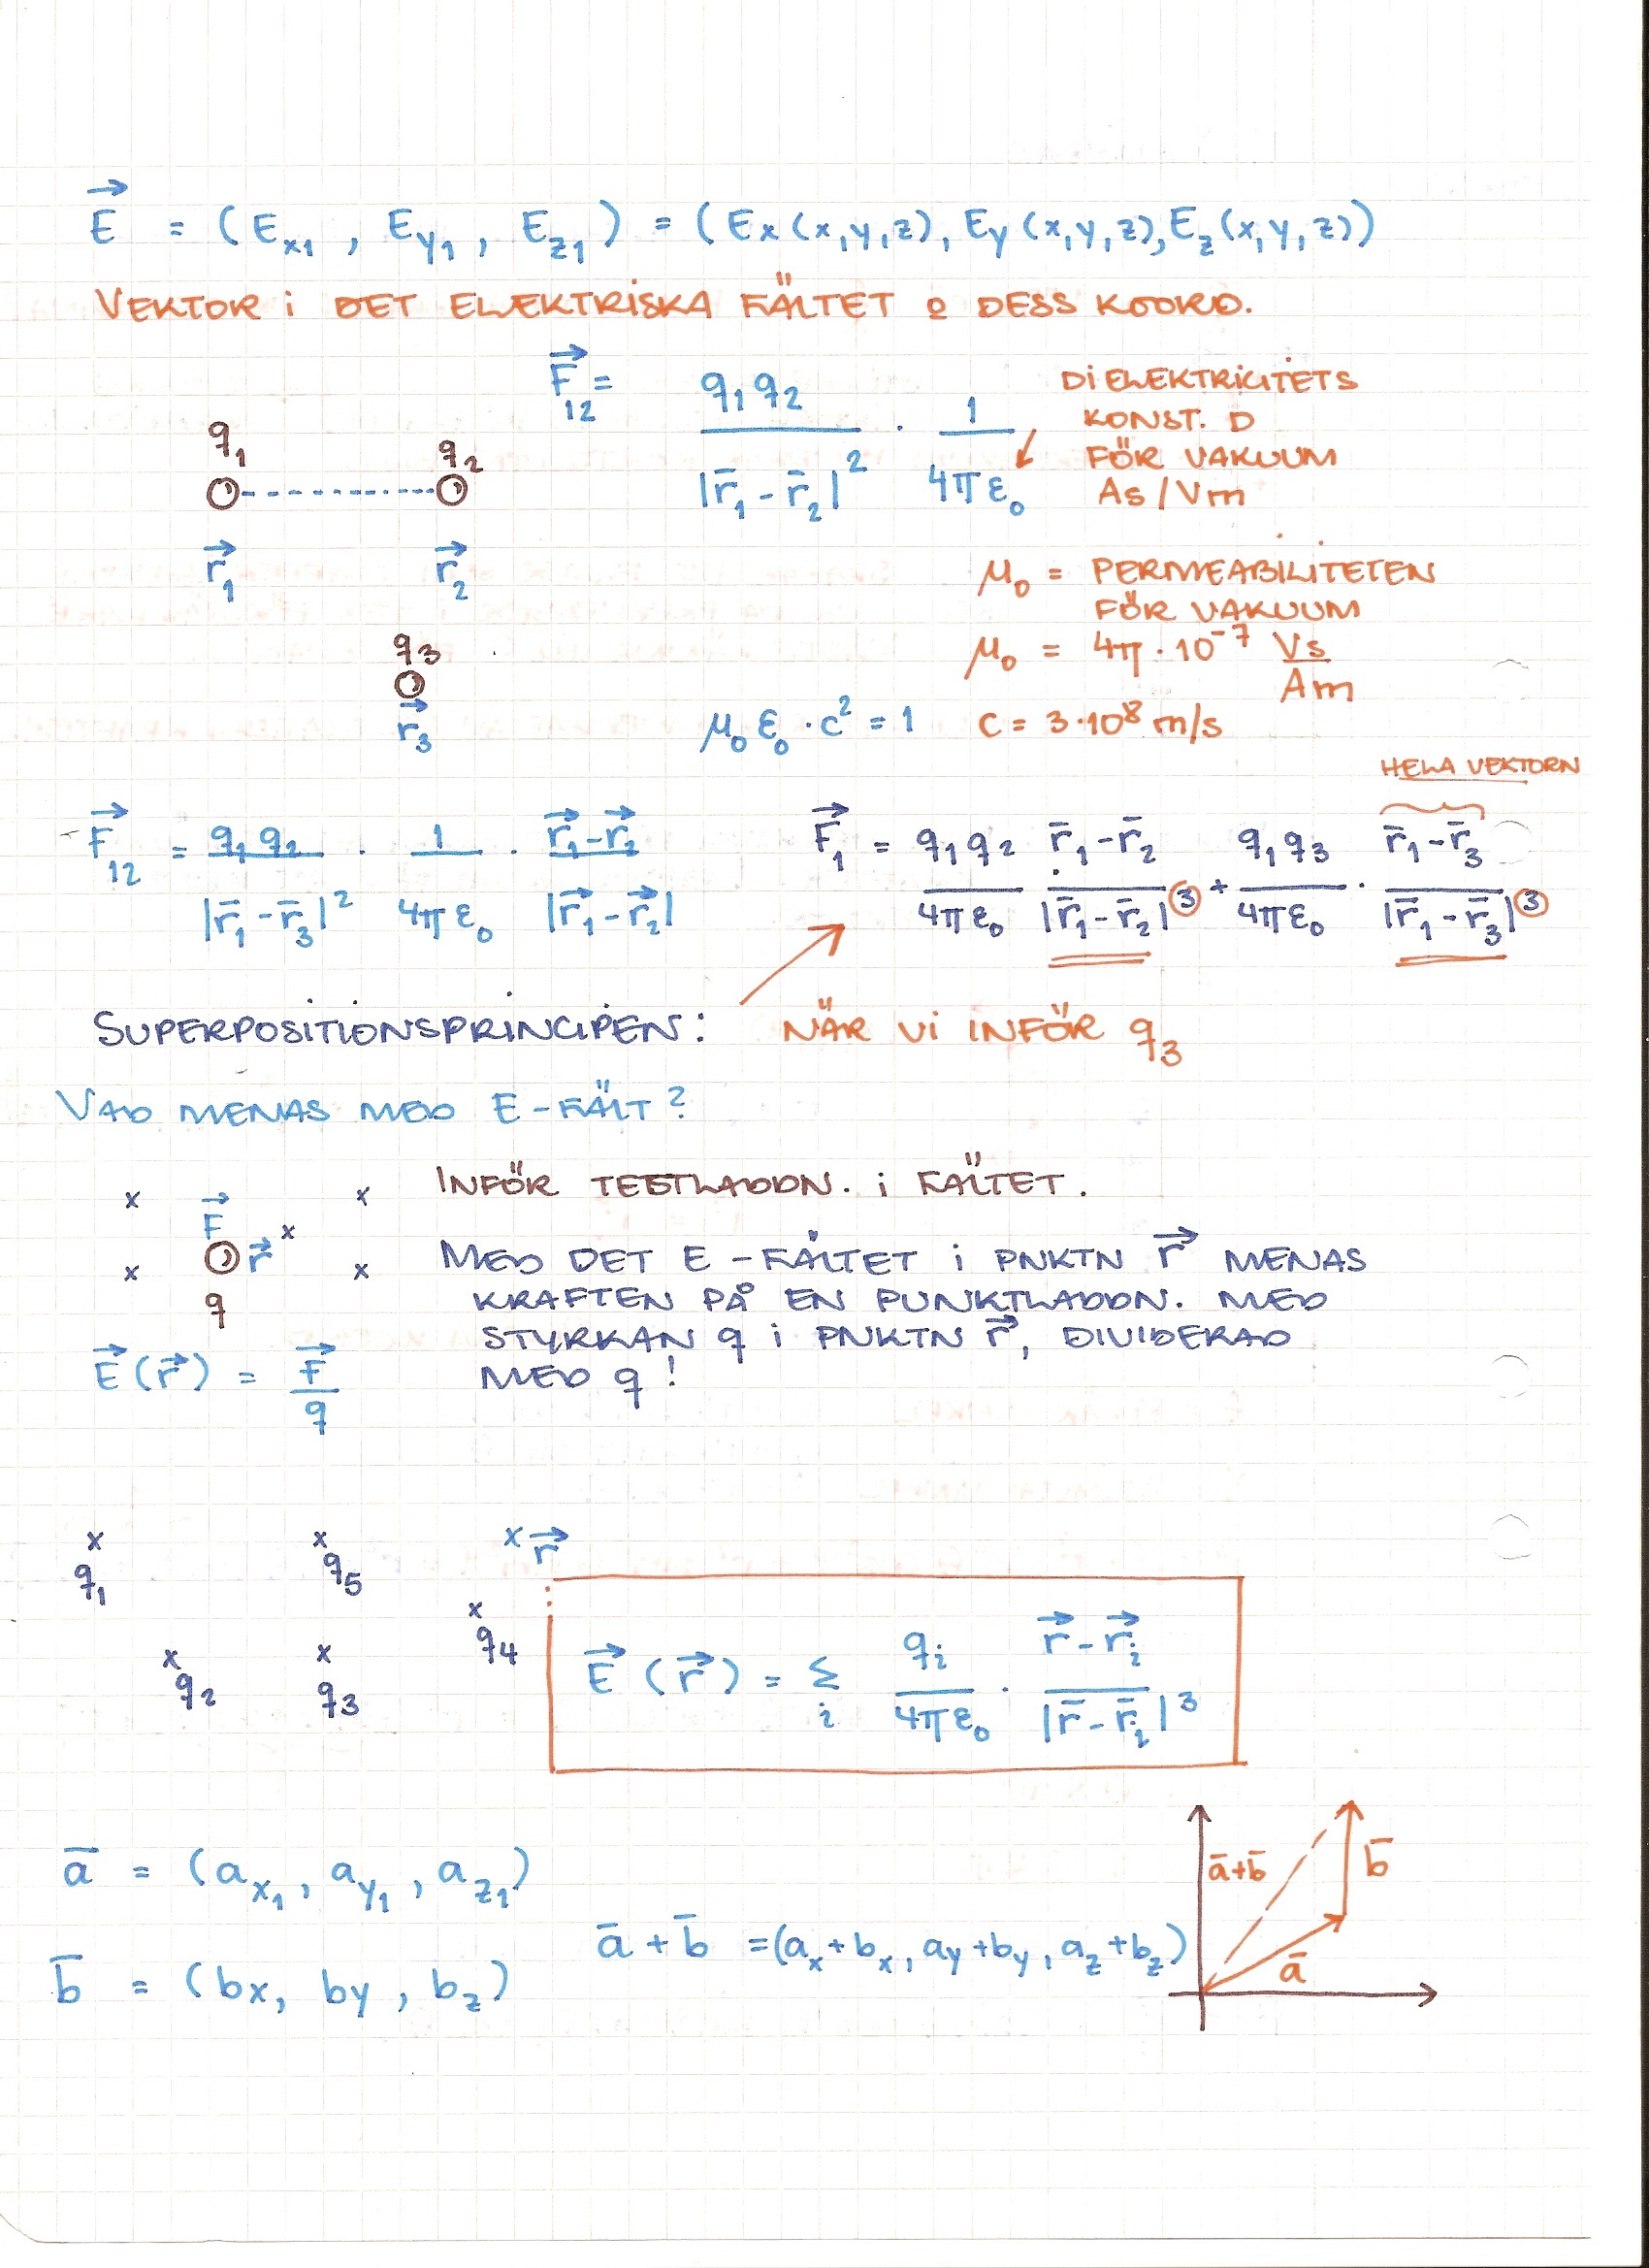 E⃗ = (Ex1, Ey1, Ez1) = (Ex(x,y,z), Ey(x,y,z), Ez(x,y,z))
VEKTOR i DET ELEKTRISKA FÄLTET o DESS KOORD.
F⃗12 = q1q2 / |r̄1 - r̄2|² · 1 / 4πε0
DiELEKTRICITETS
KONST. D
FÖR VAKUUM
As/Vm
q1 q2
r⃗1 r⃗2
μ0 = PERMEABILITETEN
FÖR VAKUUM
q3
r⃗3
μ0 = 4π·10⁻⁷ Vs/Am
μ0 ε0 · c² = 1 c = 3·10⁸ m/s
HELA VEKTORN
F⃗12 = q1q2 / |r̄1 - r̄3|² · 1 / 4πε0 · r⃗1 - r⃗2 / |r⃗1 - r⃗2|
F⃗1 = q1q2 / 4πε0 · r̄1 - r̄2 / |r̄1 - r̄2|³ + q1q3 / 4πε0 · r̄1 - r̄3 / |r̄1 - r̄3|³
SUPERPOSITIONSPRINCIPEN: NÄR Vi INFÖR q3
VAD MENAS MED E-FÄLT?
INFÖR TESTLADDN. i FÄLTET.
x x x x x
F⃗
r⃗
q
MED DET E-FÄLTET i PNKTN r⃗ MENAS
KRAFTEN PÅ EN PUNKTLADDN. MED
STYRKAN q i PNKTN r⃗, DIVIDERAD
MED q!
E⃗(r⃗) = F⃗ / q
x x x r⃗
q1 q5
x
q4
x x
q2 q3
E⃗(r⃗) = Σi qi / 4πε0 · r⃗ - r⃗i / |r̄ - r̄i|³
ā = (ax1, ay1, az1)
ā + b̄ = (ax+bx, ay+by, az+bz)
b̄ = (bx, by, bz)
ā+b̄ b̄
ā